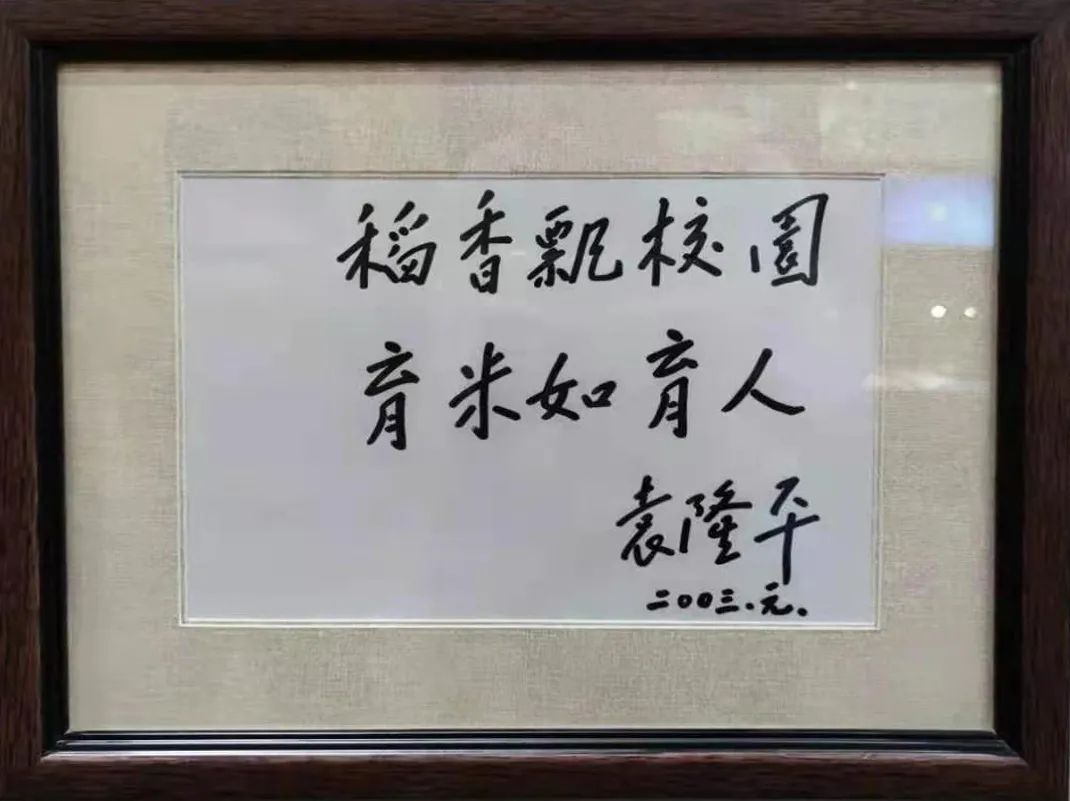 稻香飘校园
育米如育人
袁隆平
二00三.元.